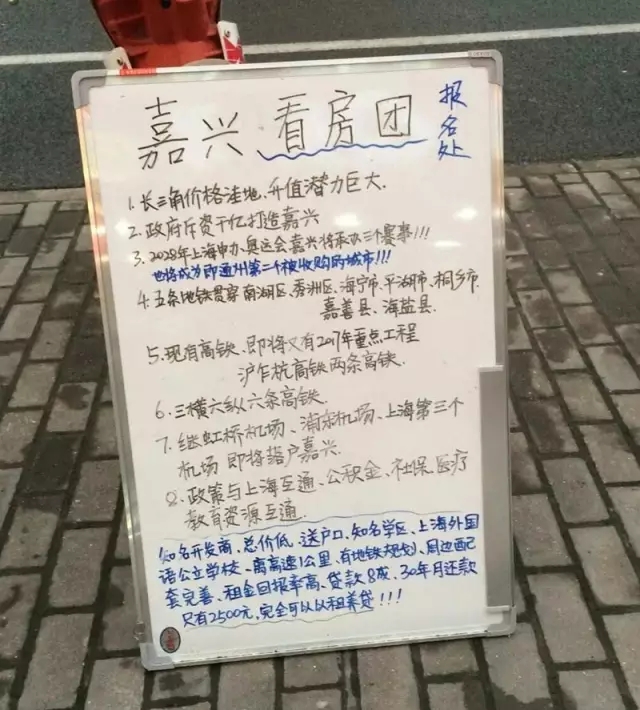 嘉兴看房团
报名处
1. 长三角价格洼地、升值潜力巨大.
2. 政府斥资千亿打造嘉兴
3. 2028年上海申办奥运会嘉兴将承办三个赛事!!!
也将成为即通州第二个被收购的城市!!!
4. 五条地铁贯穿南湖区、秀洲区、海宁市、平湖市、桐乡市.
嘉善县、海盐县.
5. 现有高铁、即将又有2017年重点工程
沪乍杭高铁两条高铁.
6. 三横六纵六条高铁.
7. 继虹桥机场、浦东机场、上海第三个
机场 即将落户嘉兴.
8. 政策与上海互通、公积金、社保、医疗
教育资源互通.
知名开发商、总价低、送户口、知名学区、上海外国
语公立学校、离高速1公里、有地铁规划、周边配
套完善、租金回报率高、贷款8成、30年月还款
只有2500元,完全可以以租养贷!!!